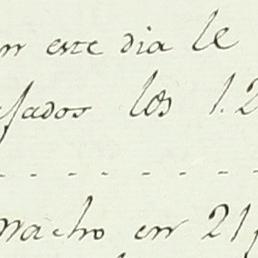 en este dia le
sados los 1.2
- - - - - - - -
macho en 21